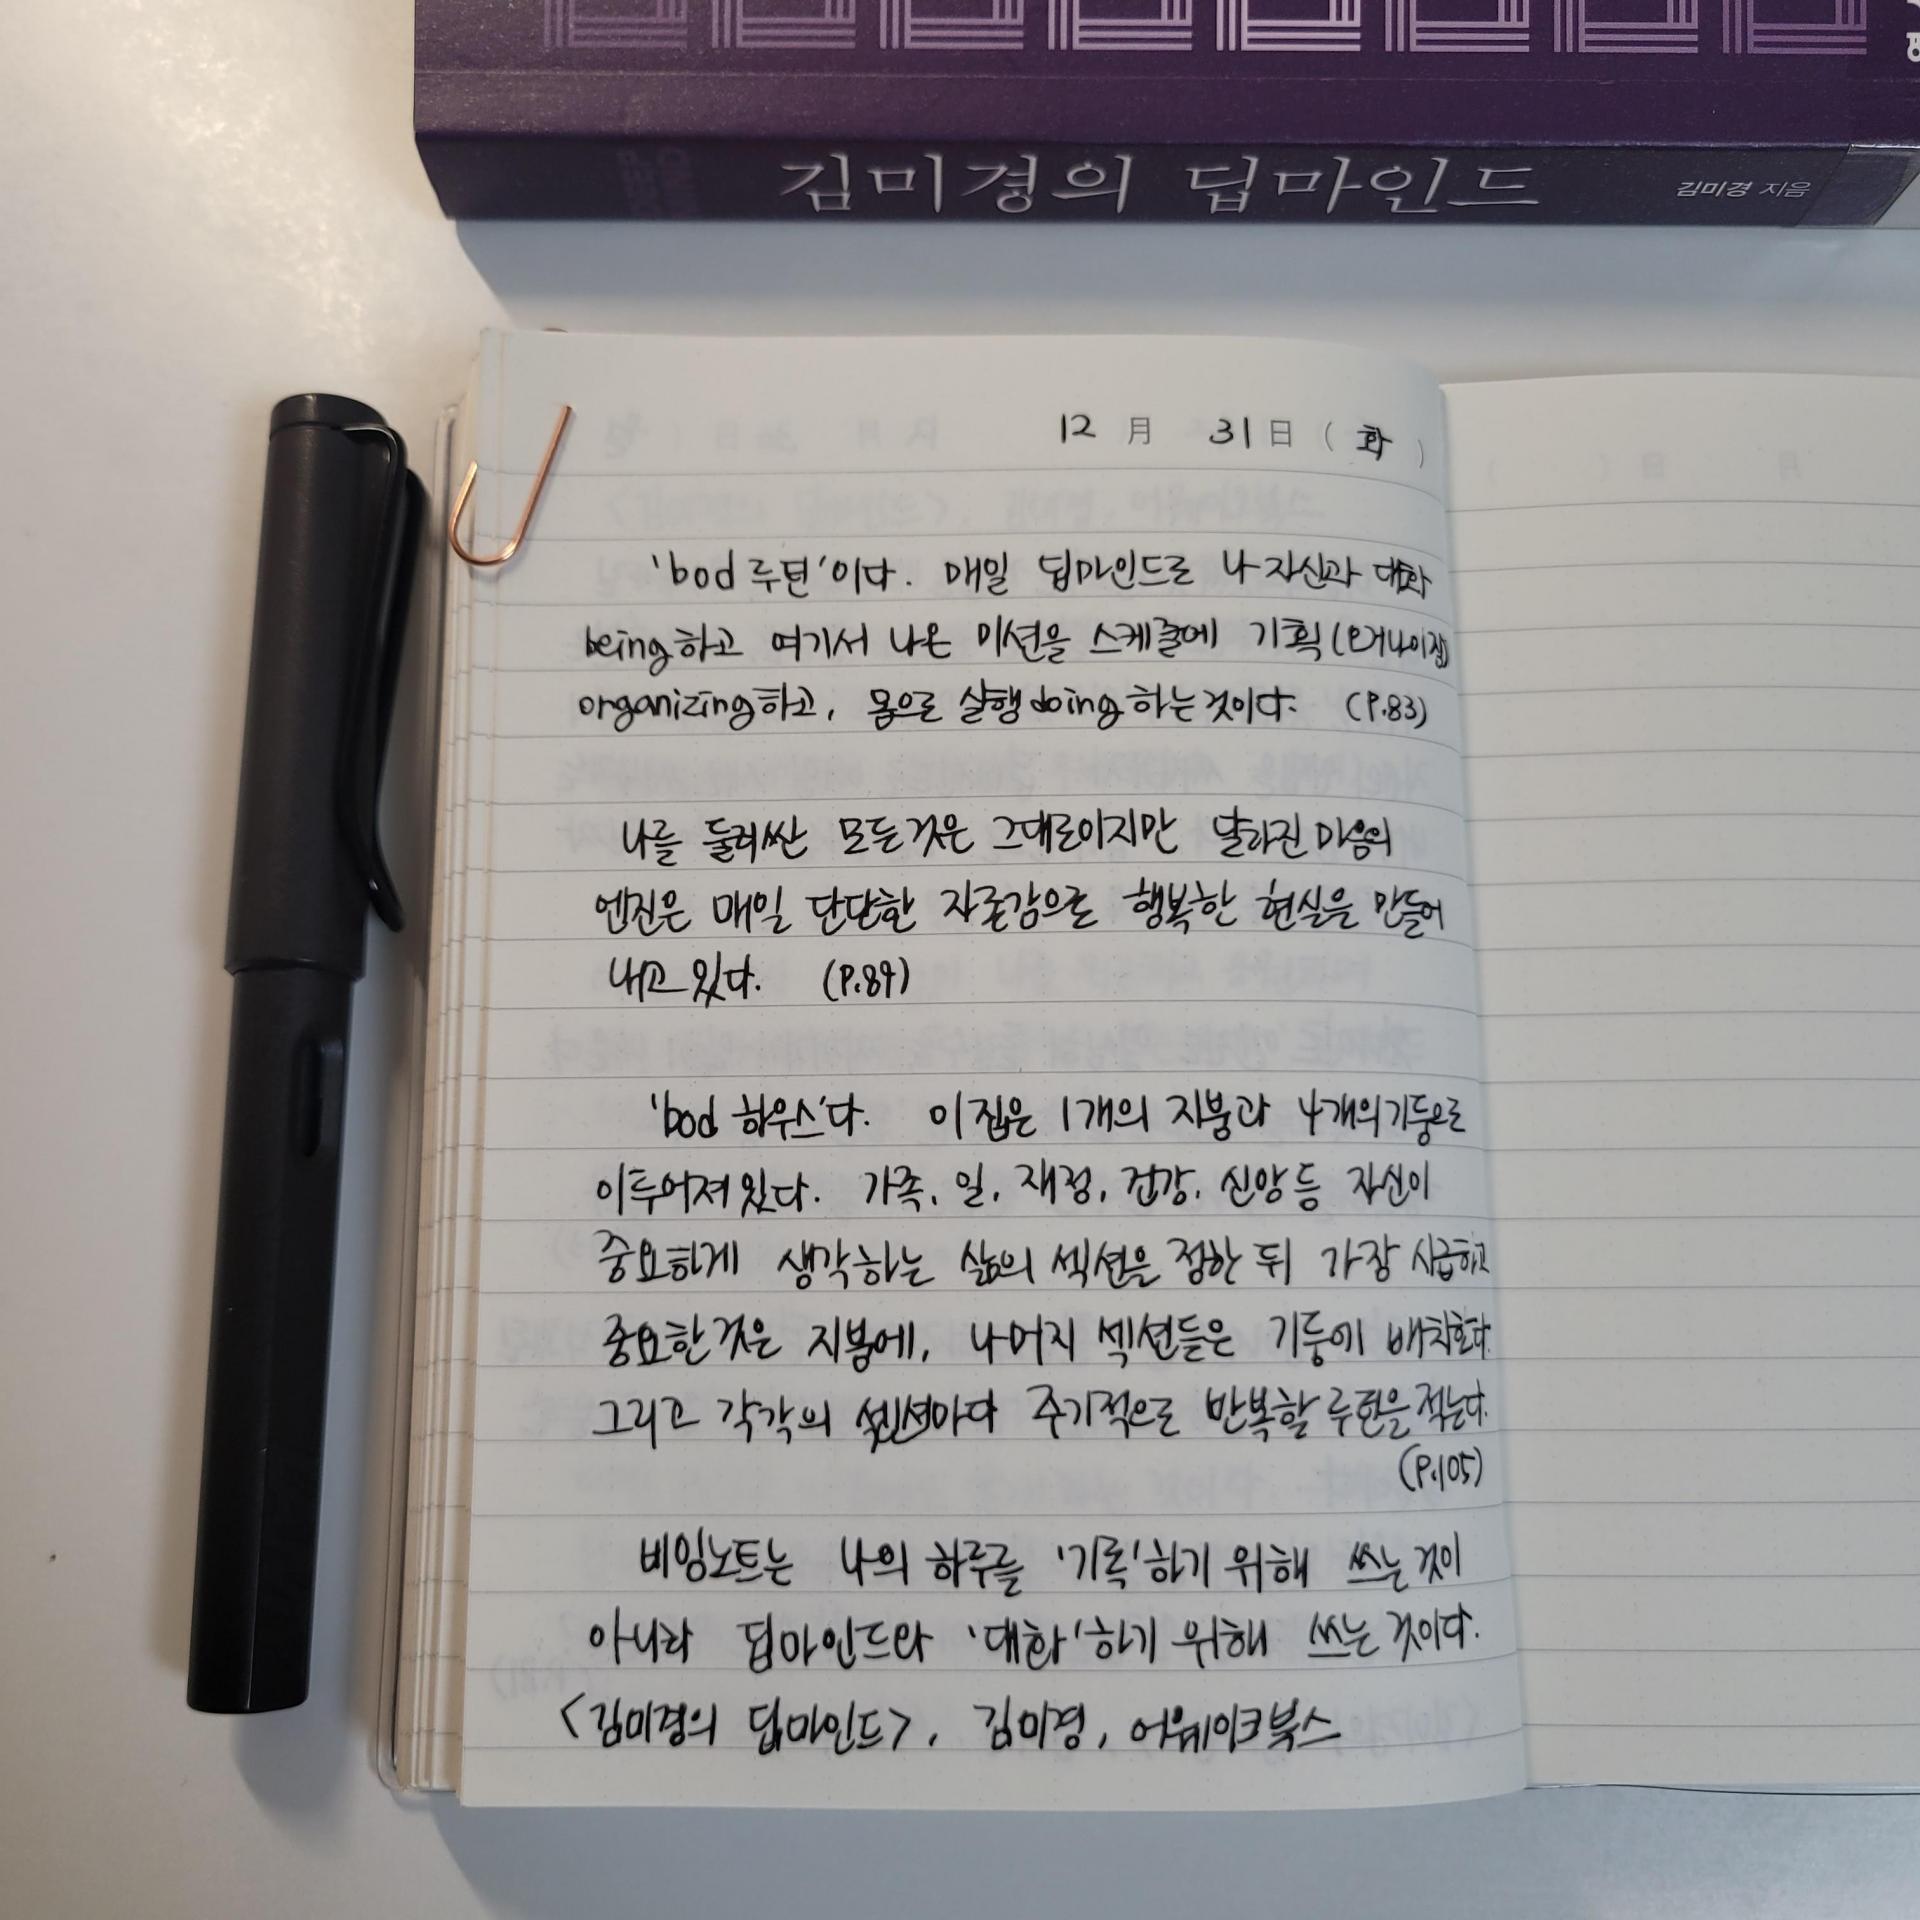 DEEP
MIND
김미경의 딥마인드
김미경 지음
12 月 31 日 ( 화 )
'bod 루틴'이다. 매일 딥마인드로 나 자신과 대화
being하고 여기서 나온 미션을 스케줄에 기획(오거나이징)
organizing하고, 몸으로 실행doing하는것이다. (P.83)
나를 둘러싼 모든것은 그대로이지만 달라진 마음의
엔진은 매일 단단한 자존감으로 행복한 현실을 만들어
내고 있다. (P.89)
'bod 하우스'다. 이 집은 1개의 지붕과 4개의 기둥으로
이루어져 있다. 가족, 일, 재정, 건강, 신앙 등 자신이
중요하게 생각하는 삶의 섹션을 정한 뒤 가장 시급하고
중요한것은 지붕에, 나머지 섹션들은 기둥에 배치한다.
그리고 각각의 섹션마다 주기적으로 반복할 루틴을 적는다.
(P.105)
비잉노트는 나의 하루를 '기록'하기 위해 쓰는 것이
아니라 딥마인드와 '대화'하기 위해 쓰는 것이다.
<김미경의 딥마인드>, 김미경, 어웨이크북스